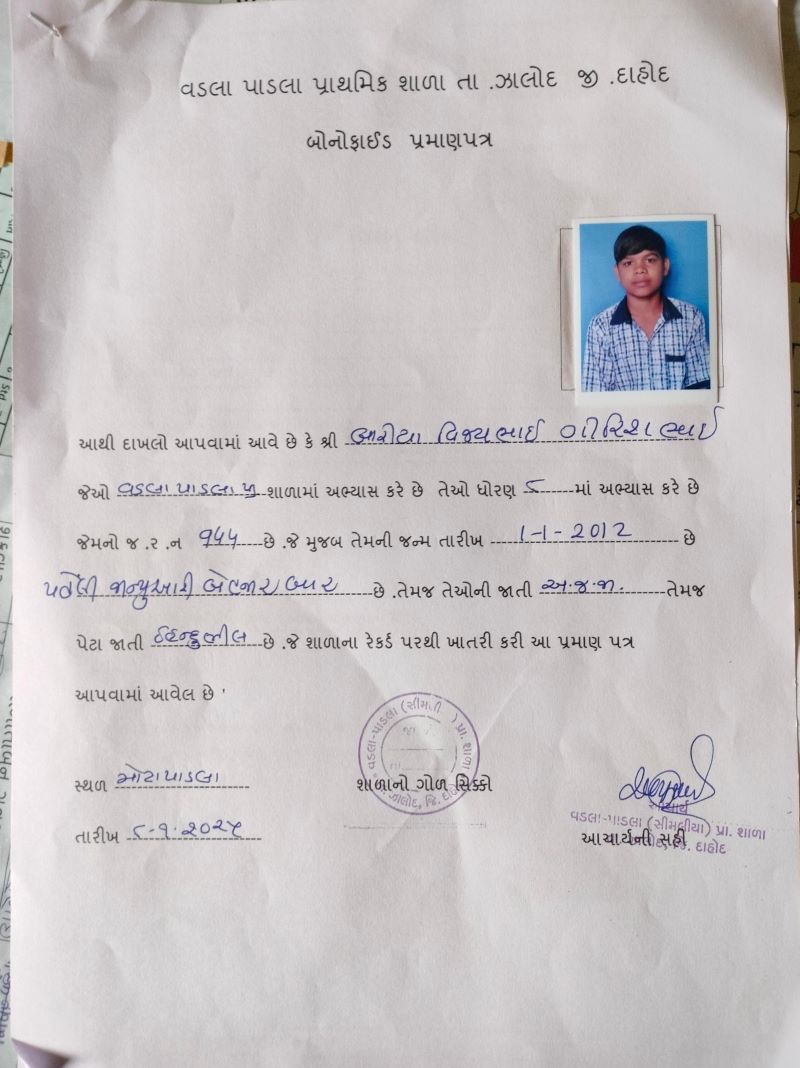 વડલા પાડલા પ્રાથમિક શાળા તા .ઝાલોદ જી .દાહોદ
બોનોફાઈડ પ્રમાણપત્ર
આથી દાખલો આપવામાં આવે છે કે શ્રી બારીયા વિજયભાઈ ગીરિશભાઈ
જેઓ વડલા પાડલા પ્રા શાળામાં અભ્યાસ કરે છે તેઓ ધોરણ ૮ માં અભ્યાસ કરે છે
જેમનો જ .ર .ન ૧૫૫ છે .જે મુજબ તેમની જન્મ તારીખ 1-1-2012 છે
પહેલી જાન્યુઆરી બેહજાર બાર છે .તેમજ તેઓની જાતી અ.જ.જા. તેમજ
પેટા જાતી હિન્દુભીલ છે .જે શાળાના રેકર્ડ પરથી ખાતરી કરી આ પ્રમાણ પત્ર
આપવામાં આવેલ છે '
સ્થળ મોટાપાડલા
શાળાનો ગોળ સિક્કો
વડલા-પાડલા (સીમળી ) પ્રા. શાળા
ઝાલોદ, જિ. દાહોદ
આચાર્ય
વડલા-પાડલા (સીમલીયા) પ્રા. શાળા
જિ. દાહોદ
તારીખ ૮-૧-૨૦૨૫
આચાર્યની સહી